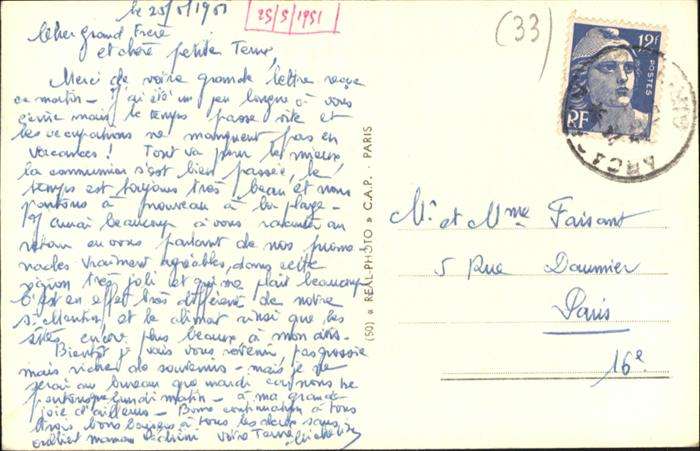 le 25/5/1951
25/5/1951
(33)
Cher grand Frère
et chère petite
Merci de votre grande lettre reçue
ce matin - J'ai été un peu longue à vous
écrire mais le temps passe vite et
les occupations ne manquent pas en
vacances ! Tout va pour le mieux
la communion s'est bien passée, le
temps est toujours très beau et nous
partons à nouveau à la plage -
J'aurai beaucoup à vous raconter au
retour en vous parlant de nos prome
nades vraiment agréables, dans cette
région très jolie et qui me plait beaucoup
C'est en effet très différent de notre
et le climat ainsi que les
sites, encore plus beaux à mon avis.
Bientôt je vais vous revenir, pas grossie
mais riche de souvenirs - mais je ne
serai au bureau que mardi car nous ne
lundi matin - à ma grande
joie d'ailleurs - Bonne continuation à tous
trois bons baisers à tous les deux sans
oublier maman chérie Votre
12F
POSTES
RF
(50) « REAL-PHOTO » C.A.P. - PARIS
Mr et Mme Faisant
5 Rue Daumier
Paris
16e